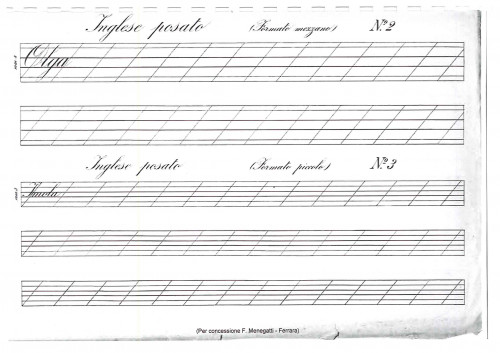 Inglese posato (Formato mezzano) N.º 2
Olga
Inglese posato (Formato piccolo) N.º 3
Imola
(Per concessione F. Menegatti - Ferrara)